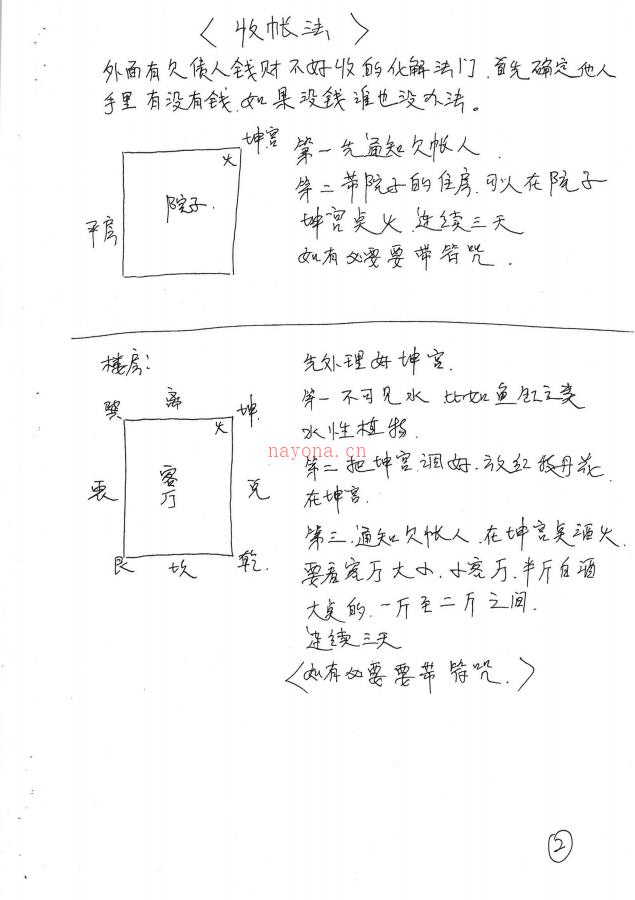 〈收帐法〉
外面有欠债人钱财不好收的化解法门.首先确定他人
手里有没有钱.如果没钱谁也没办法。
坤宫
火
院子.
平房
第一先通知欠帐人.
第二带院子的住房.可以在院子
坤宫点火.连续三天
如有必要要带符咒.
楼房:
巽 离 坤.
火
震 客厅 兑
艮 坎 乾.
先处理好坤宫.
第一不可见水 比如鱼缸之类
水性植物.
第二把坤宫调好.放红牡丹花
在坤宫.
第三.通知欠帐人.在坤宫点酒火.
要看客厅大小.小客厅.半斤白酒
大点的.一斤至二斤之间.
连续三天
〈如有必要要带符咒.〉
nayona.cn
②